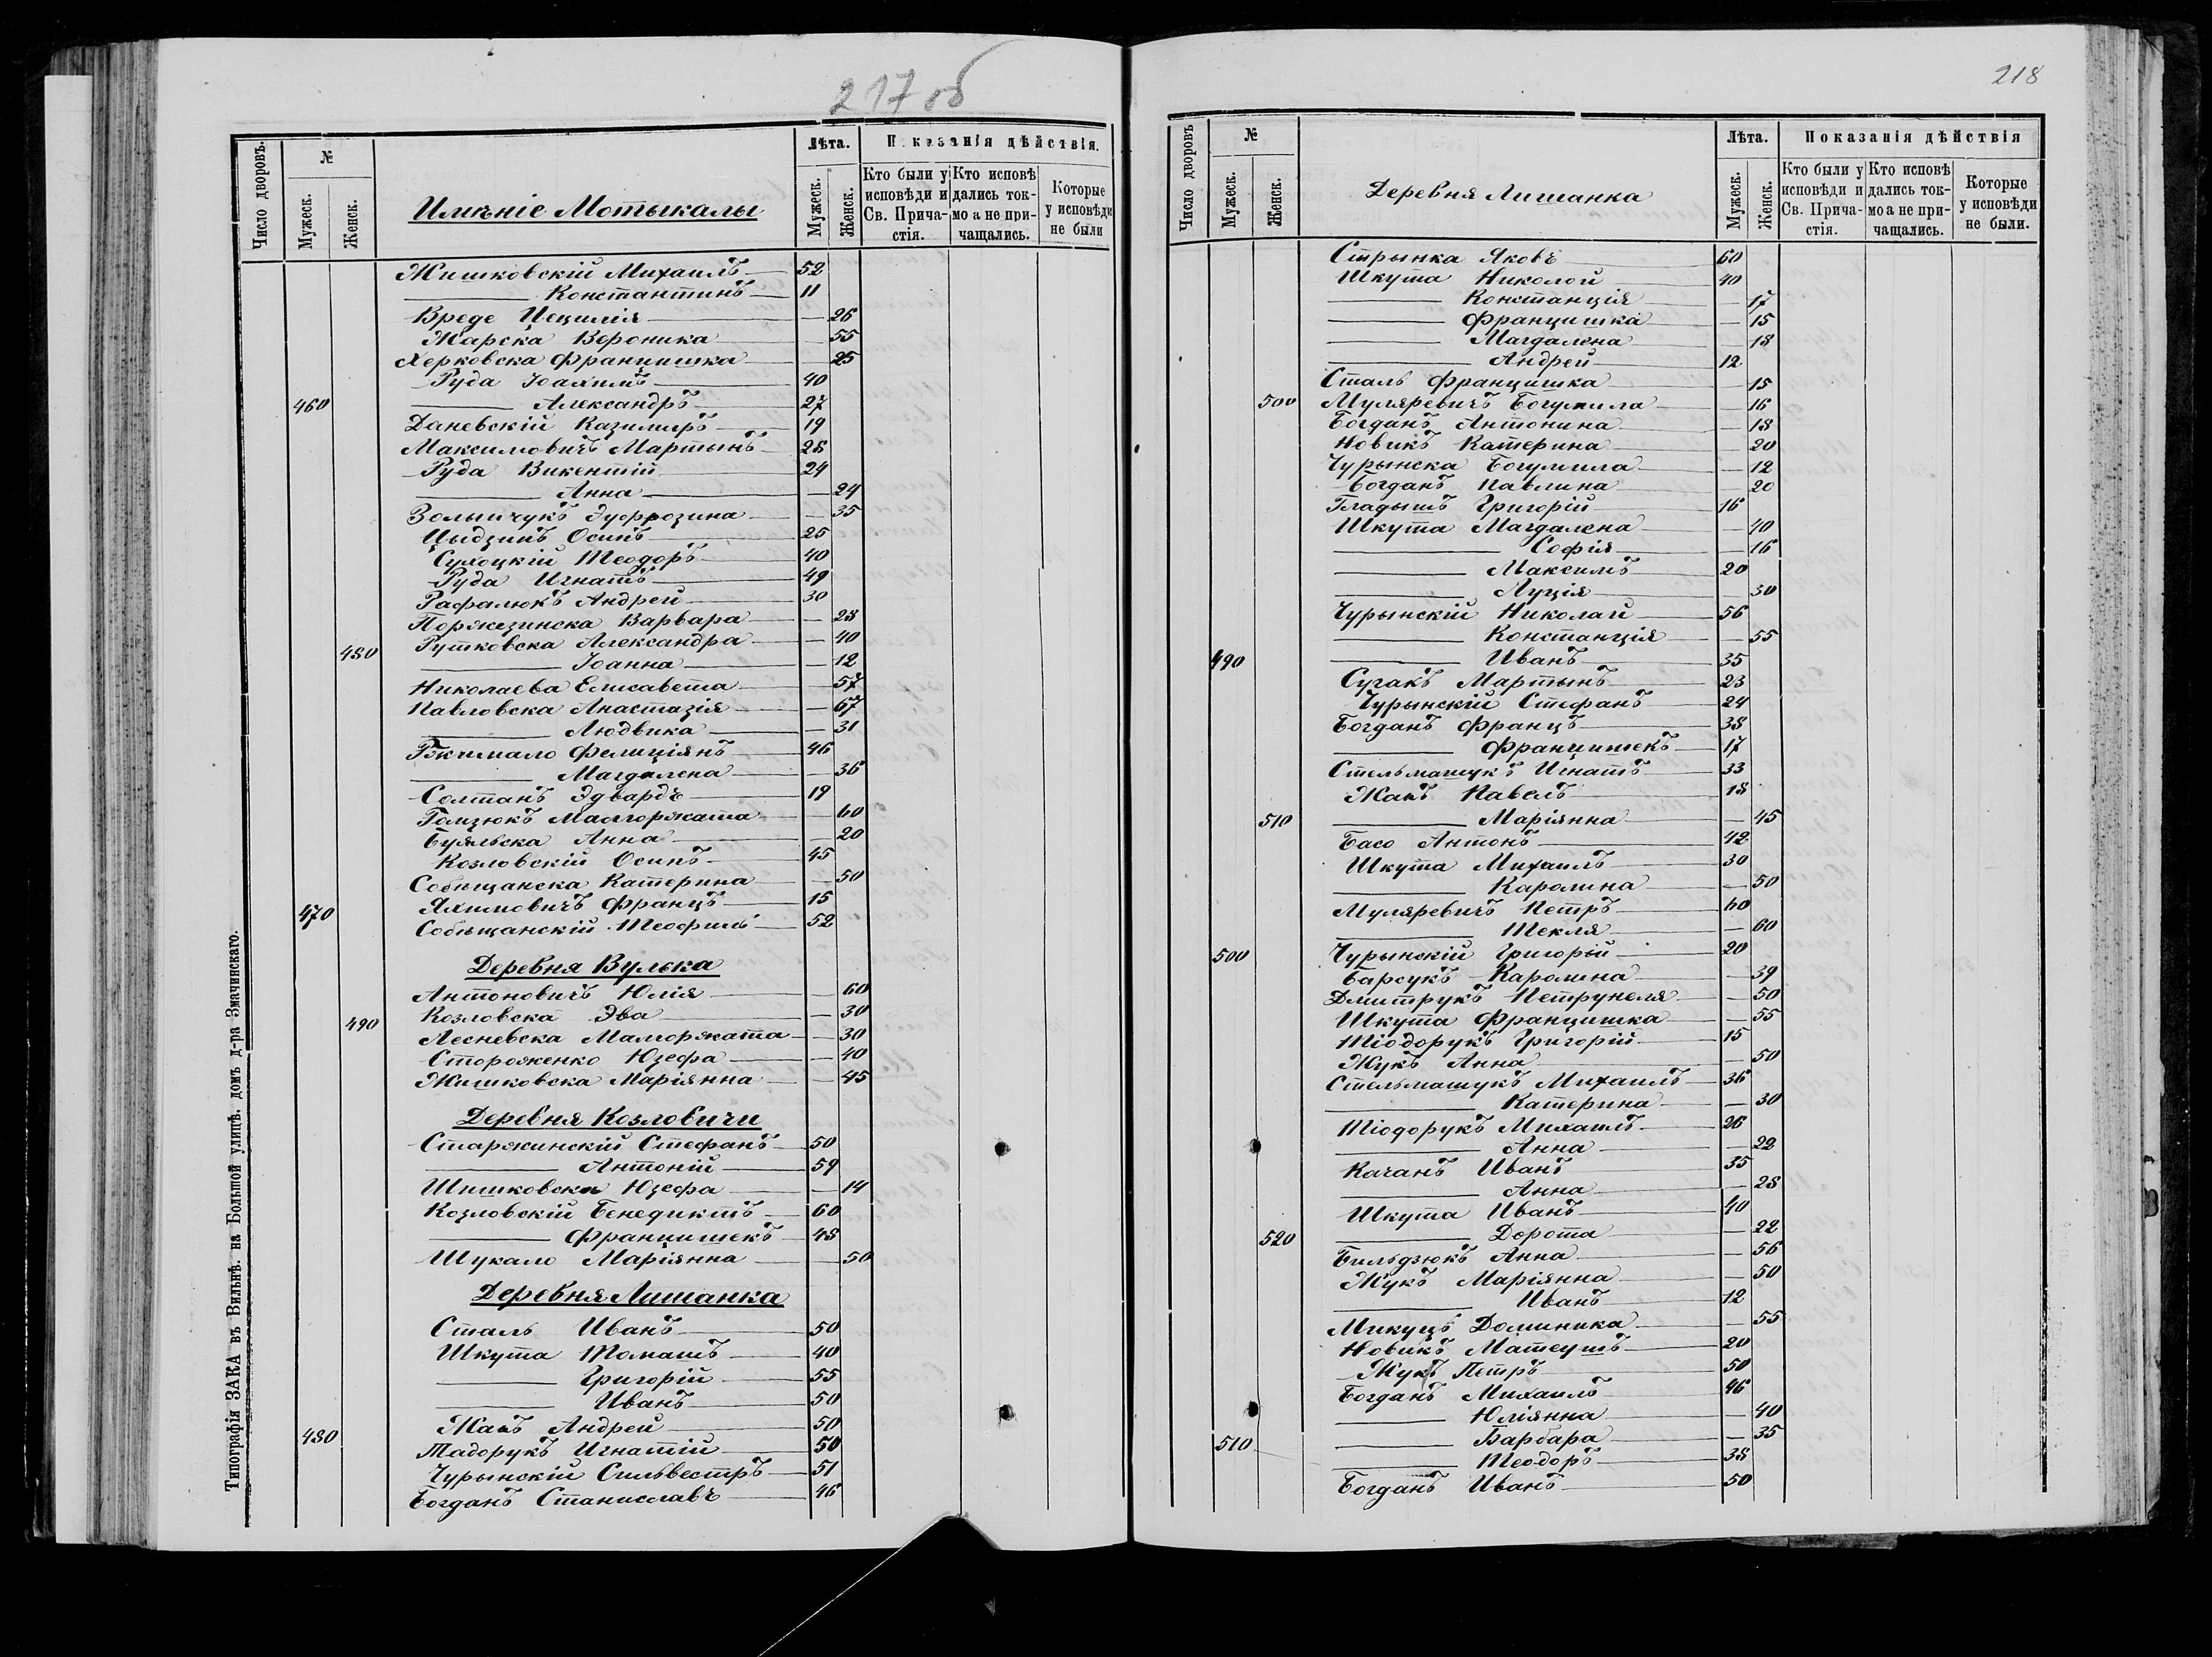 217 об
Число дворовъ.
№
Мужеск.
Женск.
Имѣніе Мотыкалы
Лѣта.
Мужеск.
Женск.
Показанія дѣйствія.
Кто были у исповѣди и Св. Прича-стія.
Кто исповѣ дались ток-мо а не при-чащались.
Которые у исповѣди не были
Жишковскій Михаилъ 52
Константинъ 11
Вреде Цецилія — 26
Жарска Вероника 55
Херковска Францишка 25
Руда Іоахимъ 40
460 Александръ 27
Даневскій Казимиръ 19
Максимовичъ Мартынъ 28
Руда Викентій 24
Анна — 24
Эуфрозина — 35
Цыдзикъ Осипъ 25
Сухоцкій Теодоръ 40
Руда Игнатъ 49
Рафалюкъ Андрей 30
Варвара — 28
Рутковска Александра — 40
480 Іоанна — 12
Николаева Елисавета — 57
Павловска Анастазія — 67
Людвика — 31
Фелиціянъ 46
Магдалена — 36
Солтанъ Эдвардъ 19
Гомзюкъ Малгоржата — 60
Буяльска Анна — 20
Козловскій Осипъ 45
Собѣщанска Катерина — 50
470 Яхимовичъ Францъ 15
Собѣщанскій Теофилъ 52
Деревня Вулька
Антоновичъ Юлія — 60
490 Козловска Эва — 30
Лесневска Малгоржата — 30
Стороженко Юзефа — 40
Жишковска Маріянна — 45
Деревня Козловичи
Старжинскій Стефанъ 50
Антоній 59
Шишковска Юзефа — 14
Козловскій Бенедиктъ 60
Францишекъ 48
Шукало Маріянна — 50
Деревня Лишанка
Сталь Иванъ 50
Шкута Томашъ 40
Григорій 55
Иванъ 50
Жакъ Андрей 50
480 Тадорукъ Игнатій 50
Чурынскій Сильвестръ 51
Богданъ Станиславъ 46
Типографія ЗАКА въ Вильнѣ. на Большой улицѣ. домъ д-ра Змачинскаго.
218
Число дворовъ
№
Мужеск.
Женск.
Деревня Лишанка
Лѣта.
Мужеск.
Женск.
Показанія дѣйствія
Кто были у исповѣди и Св. Прича-стія.
Кто исповѣ дались ток-мо а не при-чащались.
Которые у исповѣди не были.
Стрынка Яковъ 60
Шкута Николой 40
Констанція — 17
Францишка — 15
Магдалена — 18
Андрей 12
Сталь Францишка — 15
500 Муляревичъ Богумила — 16
Богданъ Антонина — 18
Новикъ Катерина — 20
Чурынска Богумила — 12
Богданъ Павлина — 20
Гладышъ Григорій 16
Шкута Магдалена — 40
Софія — 16
Максимъ 20
Луція — 30
Чурынскій Николай 56
Констанція — 55
490 Иванъ 35
Сугакъ Мартынъ 23
Чурынскій Стефанъ 24
Богданъ Францъ 38
Францишекъ 17
Стельмашукъ Игнатъ 33
Жакъ Павелъ 18
510 Маріянна — 45
Басо Антонъ 42
Шкута Михаилъ 30
Каролина — 50
Муляревичъ Петръ 60
Текля — 60
500 Чурынскій Григорій 20
Барсукъ Каролина — 39
Дмитрукъ Петрунеля — 50
Шкута Францишка — 55
Тіодорукъ Григорій 15
Жукъ Анна — 50
Стельмашукъ Михаилъ 36
Катерина — 30
Тіодорукъ Михаилъ 26
Анна — 22
Качанъ Иванъ 35
Анна — 28
Шкута Иванъ 40
520 Дорота — 22
Бильдзюкъ Анна — 56
Жукъ Маріянна — 50
Иванъ 12
Микуцъ Доминика — 55
Новикъ Матеушъ 20
Жукъ Петръ 50
Богданъ Михаилъ 46
Юліянна — 40
510 Барбара — 35
Теодоръ 38
Богданъ Иванъ 50